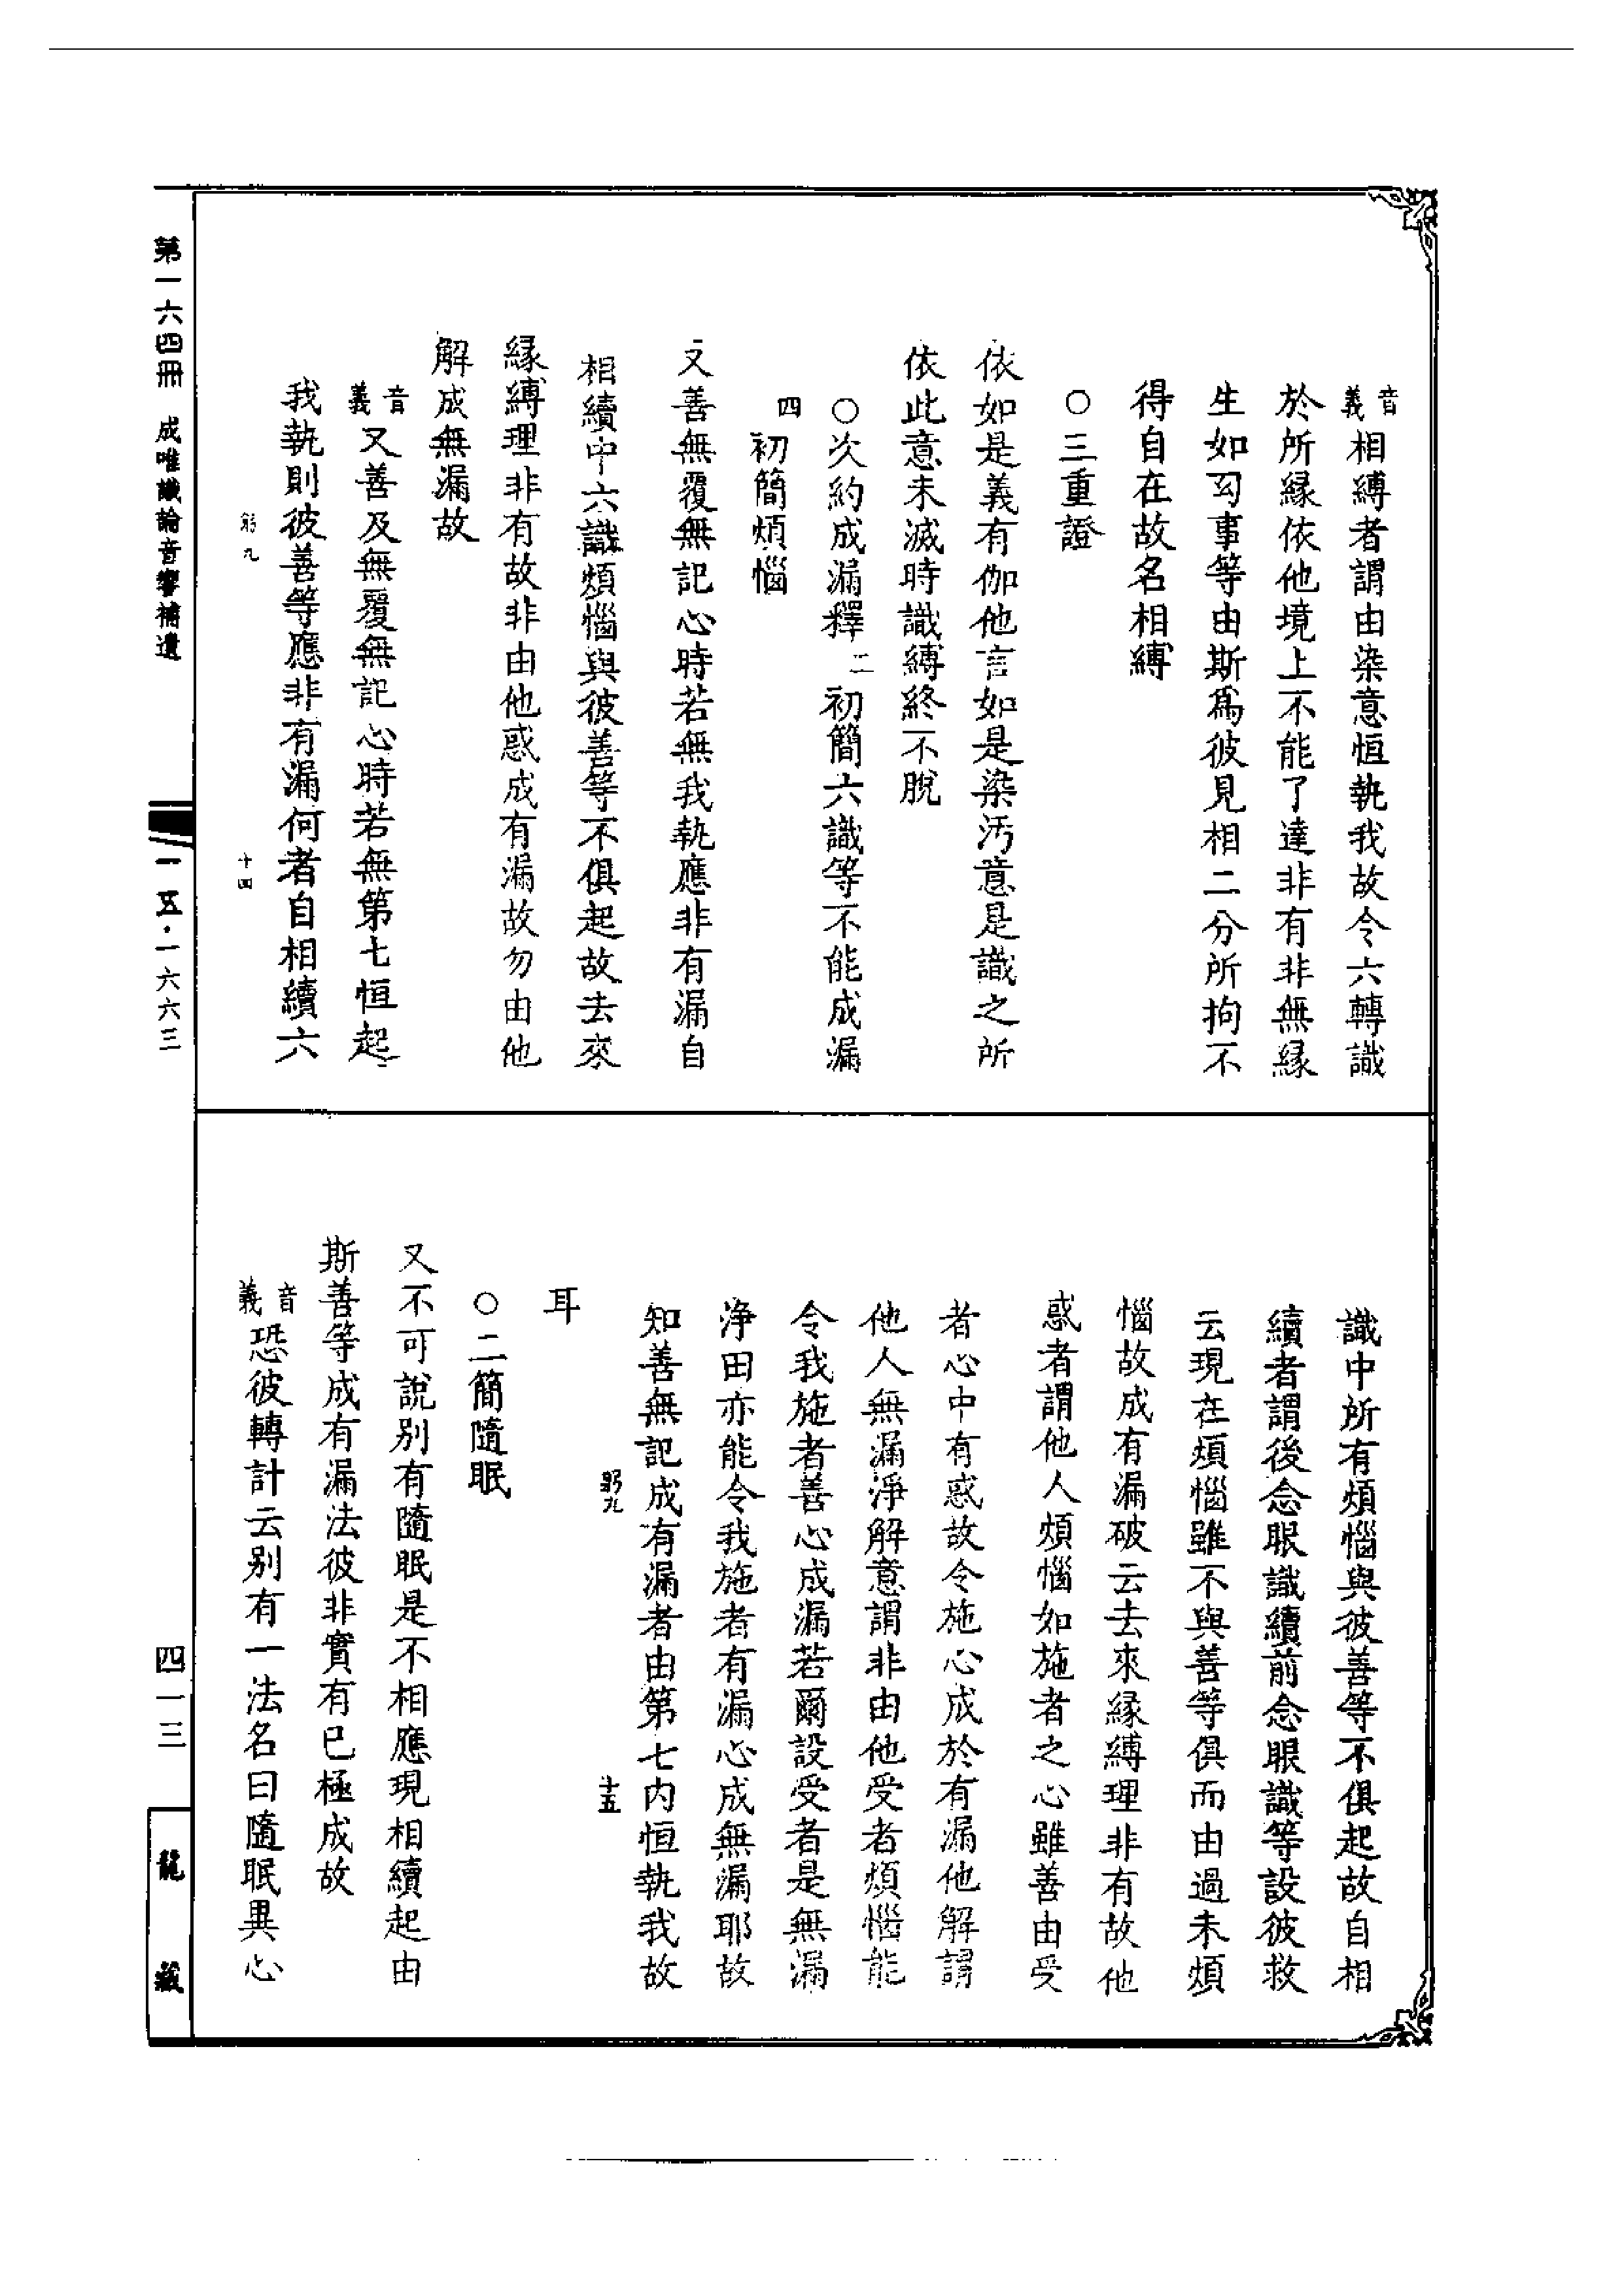 音義相縛者謂由染意恒執我故令六轉識
於所緣依他境上不能了達非有非無緣
生如幻事等由斯爲彼見相二分所拘不
得自在故名相縛
○三重證
依如是義有伽他言如是染汚意是識之所
依此意未滅時識縛終不脫
○次約成漏釋二初簡六識等不能成漏
四初簡煩惱
又善無覆無記心時若無我執應非有漏自
相續中六識煩惱與彼善等不俱起故去來
緣縛理非有故非由他惑成有漏故勿由他
解成無漏故
音義又善及無覆無記心時若無第七恒起
我執則彼善等應非有漏何者自相續六
躬九 十四
識中所有煩惱與彼善等不俱起故自相
續者謂後念眼識續前念眼識等設彼救
云現在煩惱雖不與善等俱而由過未煩
惱故成有漏破云去來緣縛理非有故他
惑者謂他人煩惱如施者之心雖善由受
者心中有惑故令施心成於有漏他解謂
他人無漏淨解意謂非由他受者煩惱能
令我施者善心成漏若爾設受者是無漏
淨田亦能令我施者有漏心成無漏耶故
知善無記成有漏者由第七內恒執我故
躬九 十五
耳
○二簡隨眠
又不可說別有隨眠是不相應現相續起由
斯善等成有漏法彼非實有已極成故
音義恐彼轉計云別有一法名曰隨眠異心
第一六四冊 成唯識論音響補遺 一五·一六六三 四一三 龍藏